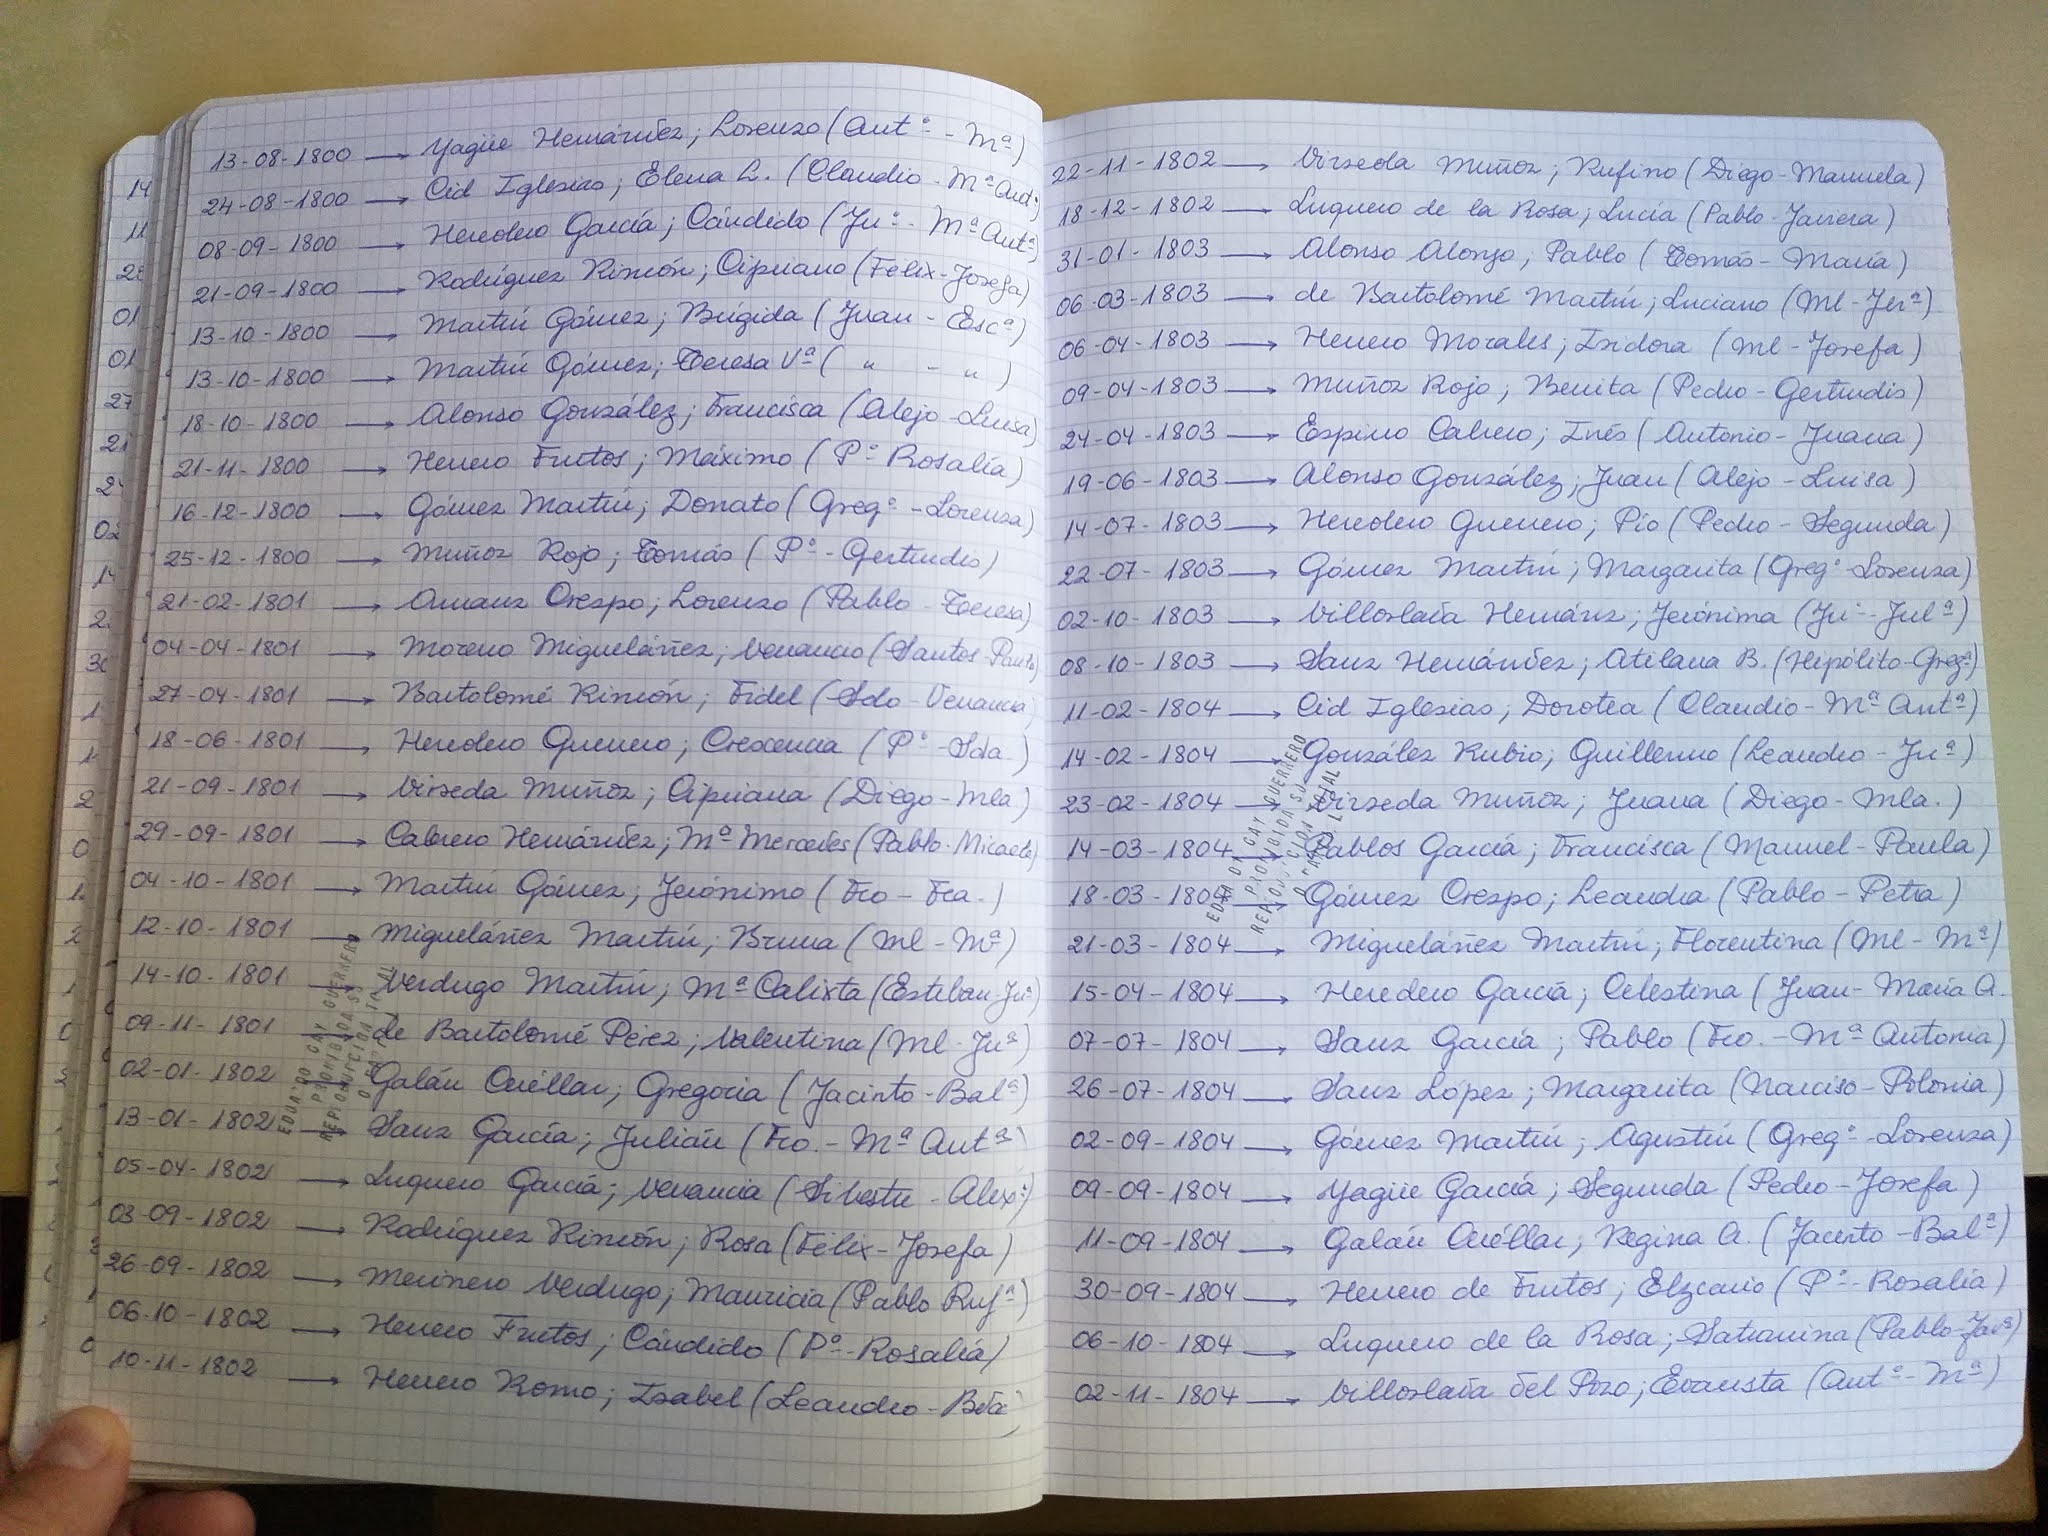 13-08-1800 → Yagüe Hernández; Lorenzo (Antº - Mª)
24-08-1800 → Cid Iglesias; Elena L. (Claudio - MªAntª)
08-09-1800 → Heredero García; Cándido (Juº - MªAntª)
21-09-1800 → Rodríguez Rincón; Cipriano (Félix-Josefa)
13-10-1800 → Martín Gómez; Brígida (Juan - Escª)
13-10-1800 → Martín Gómez; Teresa Vª ( " - " )
18-10-1800 → Alonso González; Francisca (Alejo-Luisa)
21-11-1800 → Herrero Frutos; Máximo (Pº Rosalía)
16-12-1800 → Gómez Martín; Donato (Gregº-Lorenza)
25-12-1800 → Muñoz Rojo; Tomás (Pº-Gertrudis)
21-02-1801 → Arranz Crespo; Lorenzo (Pablo-Teresa)
04-04-1801 → Moreno Migueláñez; Venancio (Santos-Paula)
27-04-1801 → Bartolomé Rincón; Fidel (Sdo-Venancia)
18-06-1801 → Heredero Guerrero; Crescencia (Pº-Sda.)
21-09-1801 → Virseda Muñoz; Cipriana (Diego-Mla)
29-09-1801 → Cabrero Hernández; Mª Mercedes (Pablo-Micaela)
04-10-1801 → Martín Gómez; Jerónimo (Fco-Fca.)
12-10-1801 → Migueláñez Martín; Bruna (Ml-Mª)
14-10-1801 → Verdugo Martín; Mª Calixta (Esteban-Juª)
09-11-1801 → de Bartolomé Pérez; Valentina (Ml-Juª)
02-01-1802 → Galán Cuéllar; Gregoria (Jacinto-Balª)
13-01-1802 → Sanz García; Julián (Fco.-Mª Antª)
05-04-1802 → Luquero García; Venancia (Silvestre-Alexª)
03-09-1802 → Rodríguez Rincón; Rosa (Félix-Josefa)
26-09-1802 → Merinero Verdugo; Mauricia (Pablo Rufª)
06-10-1802 → Herrero Frutos; Cándido (Pº-Rosalía)
10-11-1802 → Herrero Romo; Isabel (Leandro-Bda)
EDUARDO GAY GUERRERO
PROHIBIDA SU
REPRODUCCIÓN TOTAL
22-11-1802 → Virseda Muñoz; Rufino (Diego-Manuela)
18-12-1802 → Luquero de la Rosa; Lucía (Pablo-Javiera)
31-01-1803 → Alonso Alonso; Pablo (Tomás-María)
06-03-1803 → de Bartolomé Martín; Luciano (Ml-Juª)
06-04-1803 → Herrero Morales; Isidora (Ml-Josefa)
09-04-1803 → Muñoz Rojo; Benita (Pedro-Gertrudis)
24-04-1803 → Espino Cabrero; Inés (Antonio-Juana)
19-06-1803 → Alonso González; Juan (Alejo-Luisa)
14-07-1803 → Heredero Guerrero; Pío (Pedro-Segunda)
22-07-1803 → Gómez Martín; Margarita (Gregº-Lorenza)
02-10-1803 → Villoslada Hernánz; Jerónima (Juº-Julª)
08-10-1803 → Sanz Hernández; Atilana B. (Hipólito-Gregª)
11-02-1804 → Cid Iglesias; Dorotea (Claudio-Mª Antª)
14-02-1804 → González Rubio; Guillermo (Leandro-Juª)
23-02-1804 → Virseda Muñoz; Juana (Diego-Mla.)
14-03-1804 → Pablos García; Francisca (Manuel-Paula)
18-03-1804 → Gómez Crespo; Leandra (Pablo-Petra)
21-03-1804 → Migueláñez Martín; Florentina (Ml-Mª)
15-04-1804 → Heredero García; Celestina (Juan-María A.
07-07-1804 → Sanz García; Pablo (Fco.-Mª Antonia)
26-07-1804 → Sanz López; Margarita (Narciso-Polonia)
02-09-1804 → Gómez Martín; Agustín (Gregº-Lorenza)
09-09-1804 → Yagüe García; Segunda (Pedro-Josefa)
11-09-1804 → Galán Cuéllar; Regina A. (Jacinto-Balª)
30-09-1804 → Herrero de Frutos; Elzeario (Pº-Rosalía)
06-10-1804 → Luquero de la Rosa; Saturnina (Pablo-Javª)
02-11-1804 → Villoslada del Pozo; Evarista (Antº-Mª)
EDUARDO GAY GUERRERO
PROHIBIDA SU